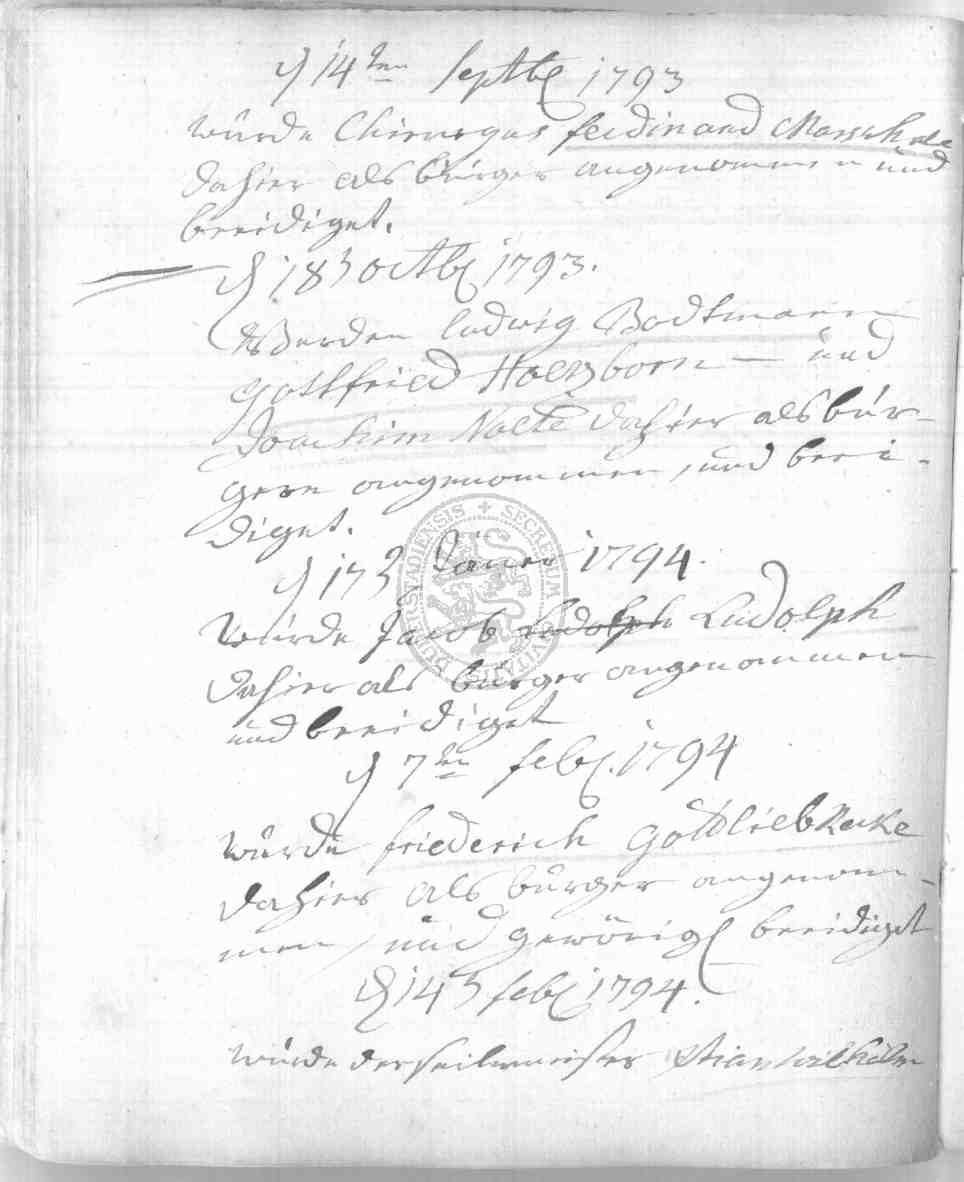 d 14ten Septb 1793
wurde Chirurgus ferdinand Marschale
dahier als burger angenommen und
beeidiget.
d 18t octb 1793.
Werden ludwig Bodtmann
gottfried Holtzborn – und
Joachim Nolte dahier als bür-
gere angenommen, und beei-
diget.
d 17t Janer 1794.
Wurde Jacob Ludolph Ludolph
dahier als burger angenommen
und beeidiget
d 7ten febr. 1794
wurde friederich gottlieb Reke
dahier als burger angenom-
men, und gewörigl beeidiget
d 14t febr 1794.
wurde der
SECRETUM CIVITATIS DUDERSTADIENSIS